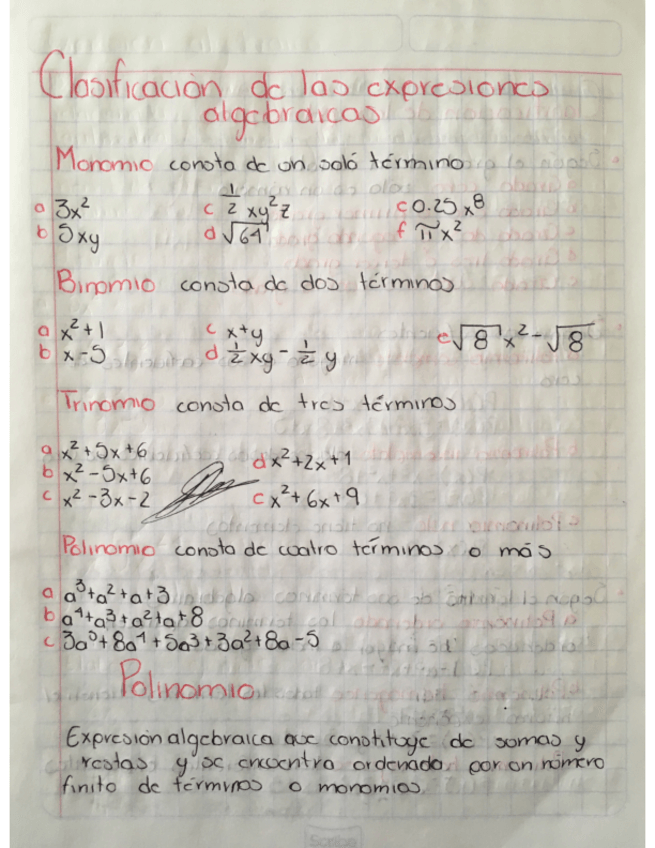 Clasificación de las expresiones
algebraicas
Monomio consta de un saló término
a 3x² c 1/2 xy²z e 0.25x⁸
b 5xy d √64 f πx²
Binomio consta de dos términos
a x²+1 c x+y e √8 x² - √8
b x-5 d 1/2 xy - 1/2 y
Trinomio consta de tres términos
a x²+5x+6 d x²+2x+1
b x²-5x+6
c x²-3x-2 e x²+6x+9
Polinomio consta de cuatro términos o más
a a³+a²+a+3
b a⁴+a³+a²+a+8
c 3a⁵+8a⁴+5a³+3a²+8a-5
Polinomio
Expresión algebraica que constituye de sumas y
restas y se encuentra ordenada por un número
finito de términos o monomios
Scribe